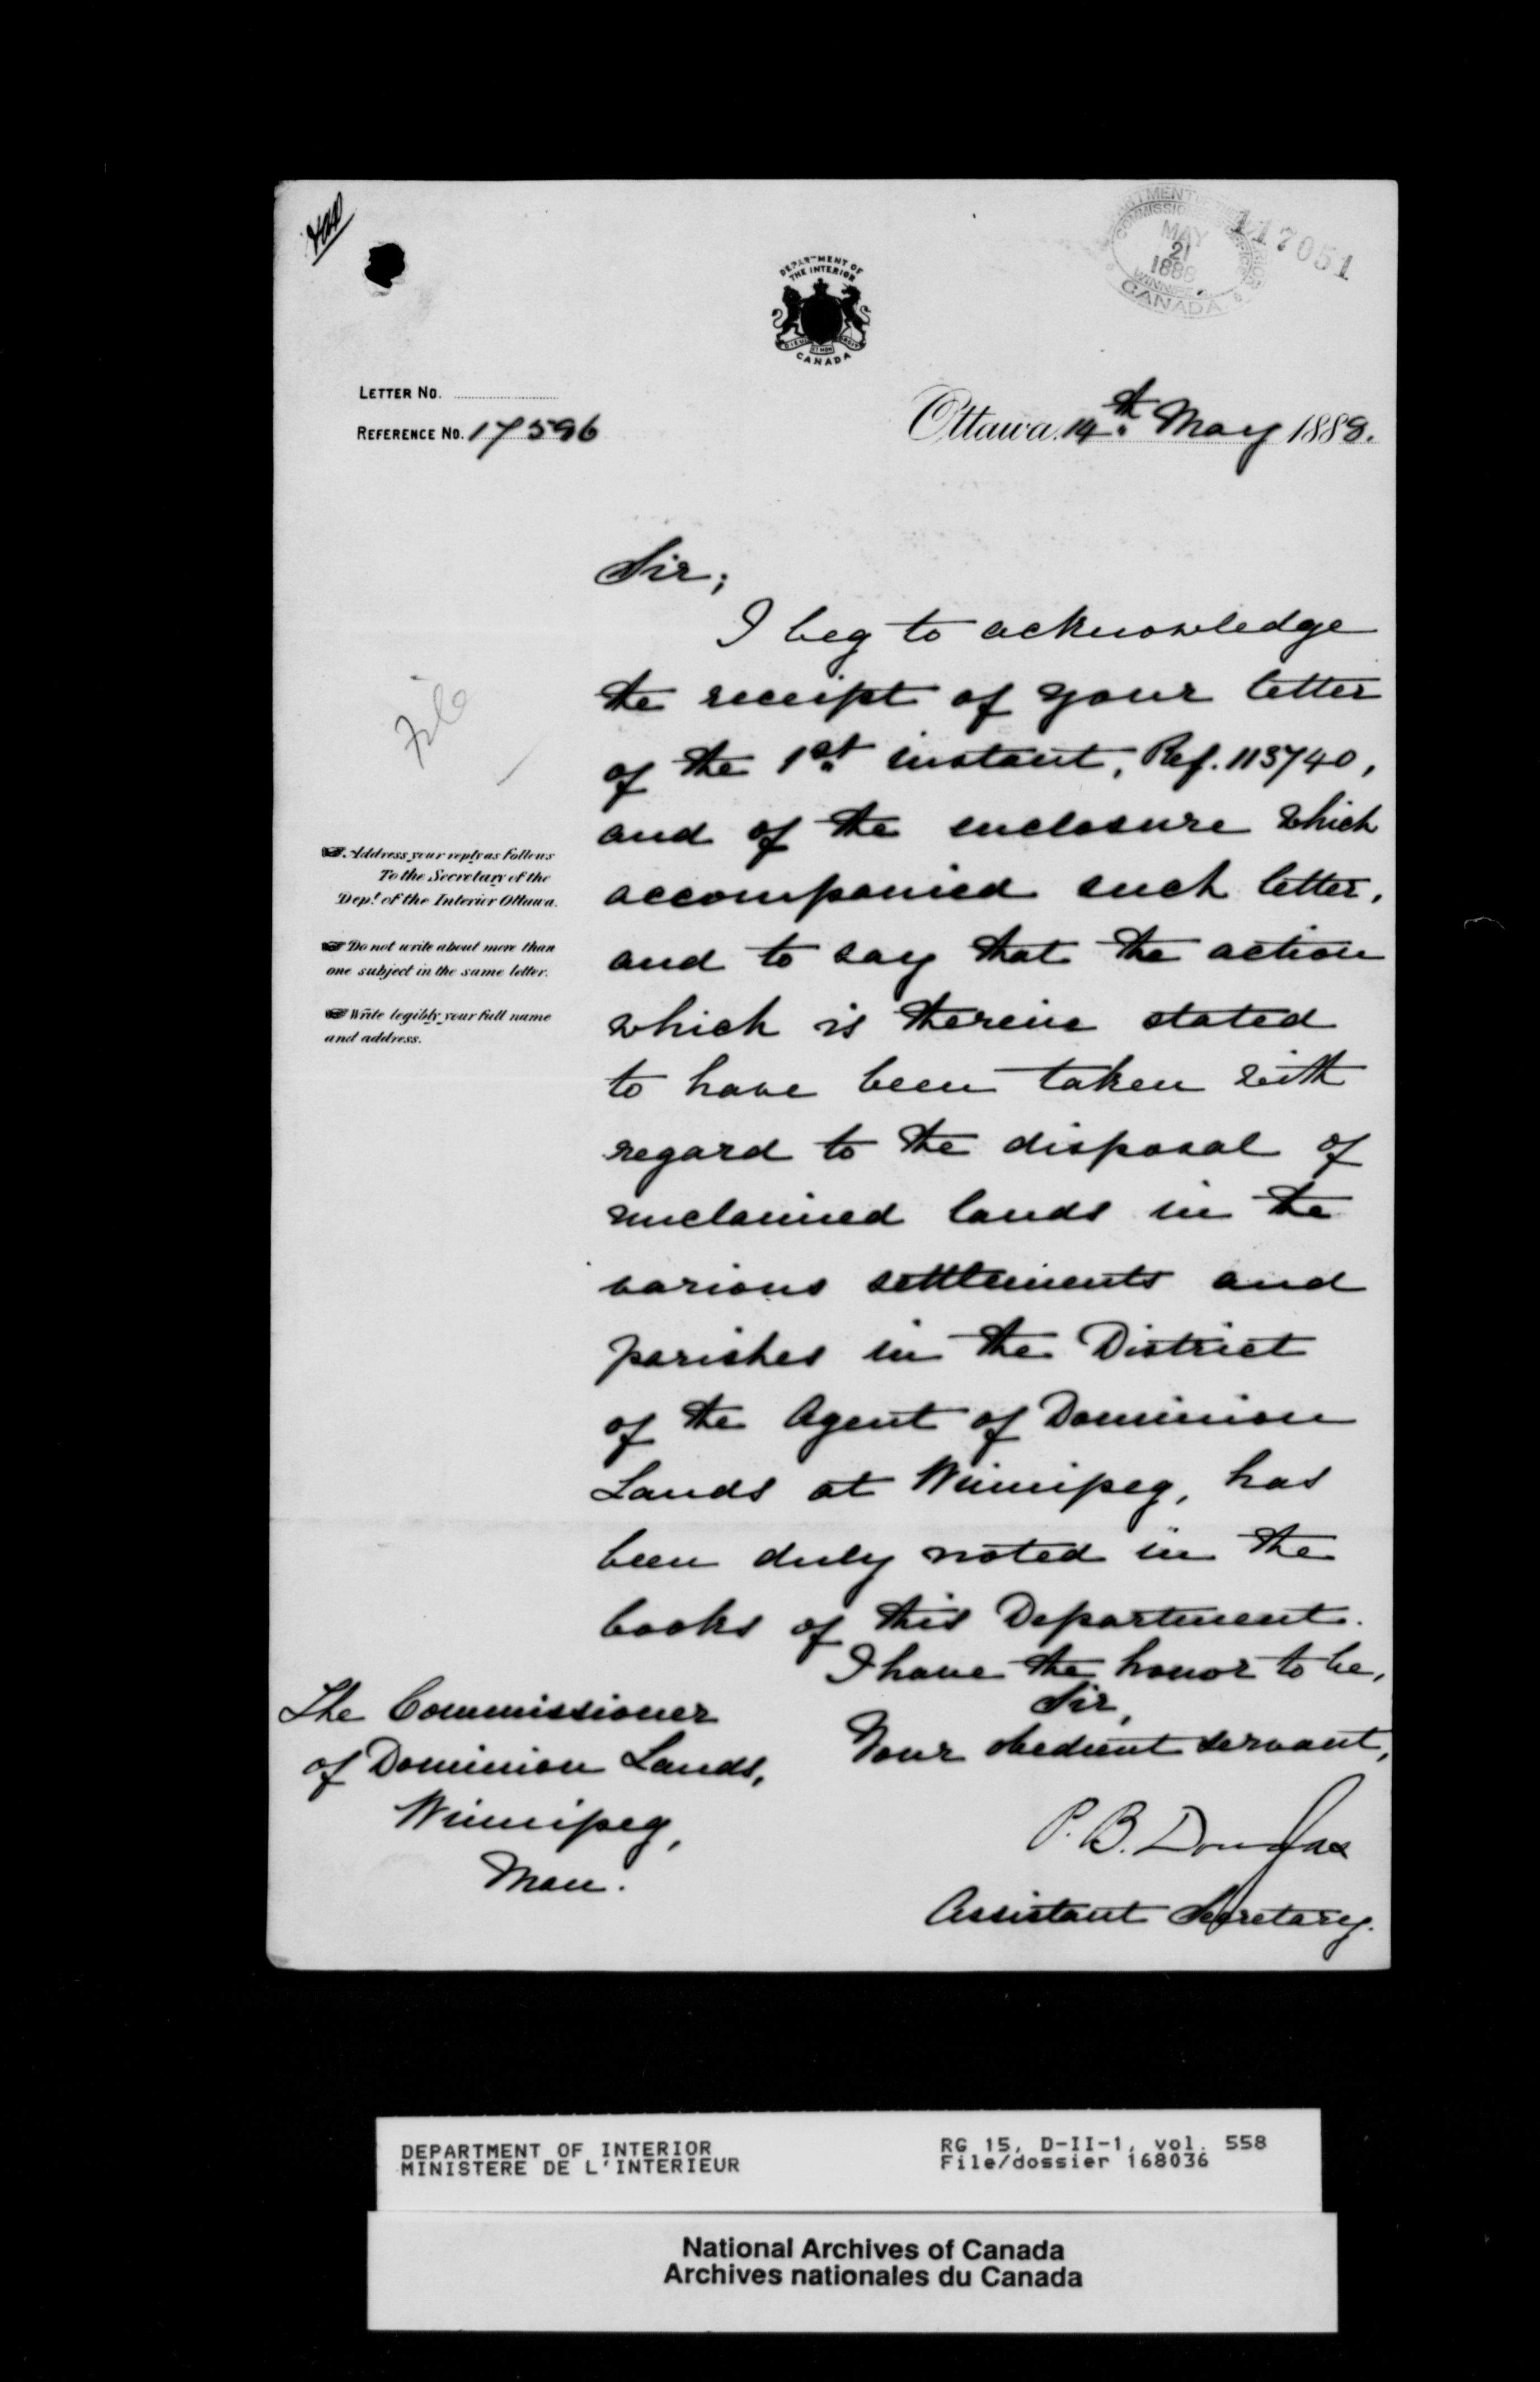 DEPARTMENT OF THE INTERIOR
COMMISSIO
MAY
21
1888
WINNIPEG
CANADA
117051
DEPARTMENT OF
THE INTERIOR
DIEU ET MON DROIT
CANADA
LETTER No.
REFERENCE No. 17596
Ottawa 14th May 1888.
Sir;
I beg to acknowledge
the receipt of your letter
of the 1st instant, Ref. 113740,
and of the enclosure which
accompanied such letter,
and to say that the action
which is therein stated
to have been taken with
regard to the disposal of
unclaimed lands in the
various settlements and
parishes in the District
of the Agent of Dominion
Lands at Winnipeg, has
been duly noted in the
books of this Department.
I have the honor to be,
Sir,
Your obedient servant,
P. B. Douglas
Assistant Secretary.
The Commissioner
of Dominion Lands,
Winnipeg,
Man.
File
Address your reply as follows
To the Secretary of the
Dept. of the Interior Ottawa.
Do not write about more than
one subject in the same letter.
Write legibly your full name
and address.
DEPARTMENT OF INTERIOR
MINISTERE DE L'INTERIEUR
RG 15, D-II-1, vol. 558
File/dossier 168036
National Archives of Canada
Archives nationales du Canada